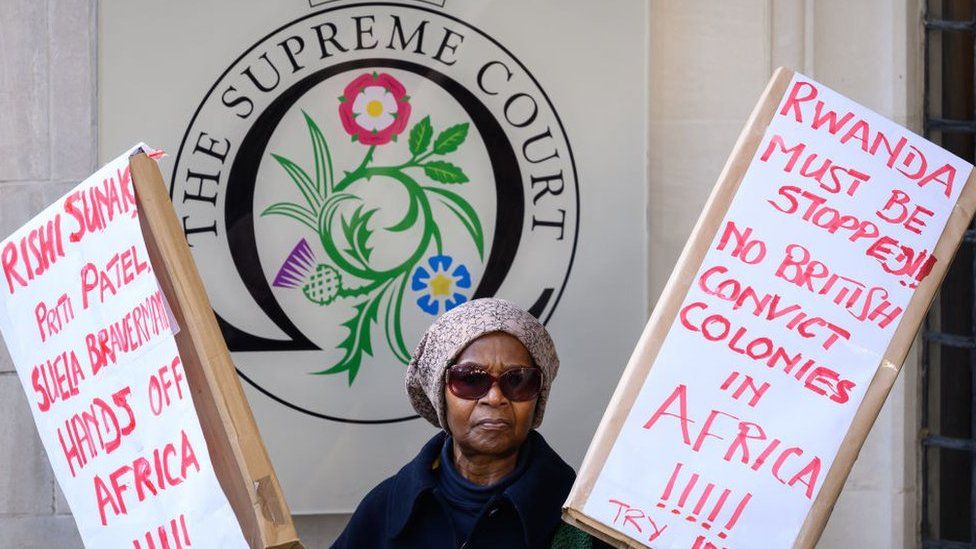 THE SUPREME COURT
RISHI SUNAK,
PRITI PATEL.
SUELA BRAVERMAN
HANDS OFF
AFRICA
!!!!
RWANDA
MUST BE
STOPPED!!!
NO BRITISH
CONVICT
COLONIES
IN
AFRICA
!!!!!!
TRY
IN